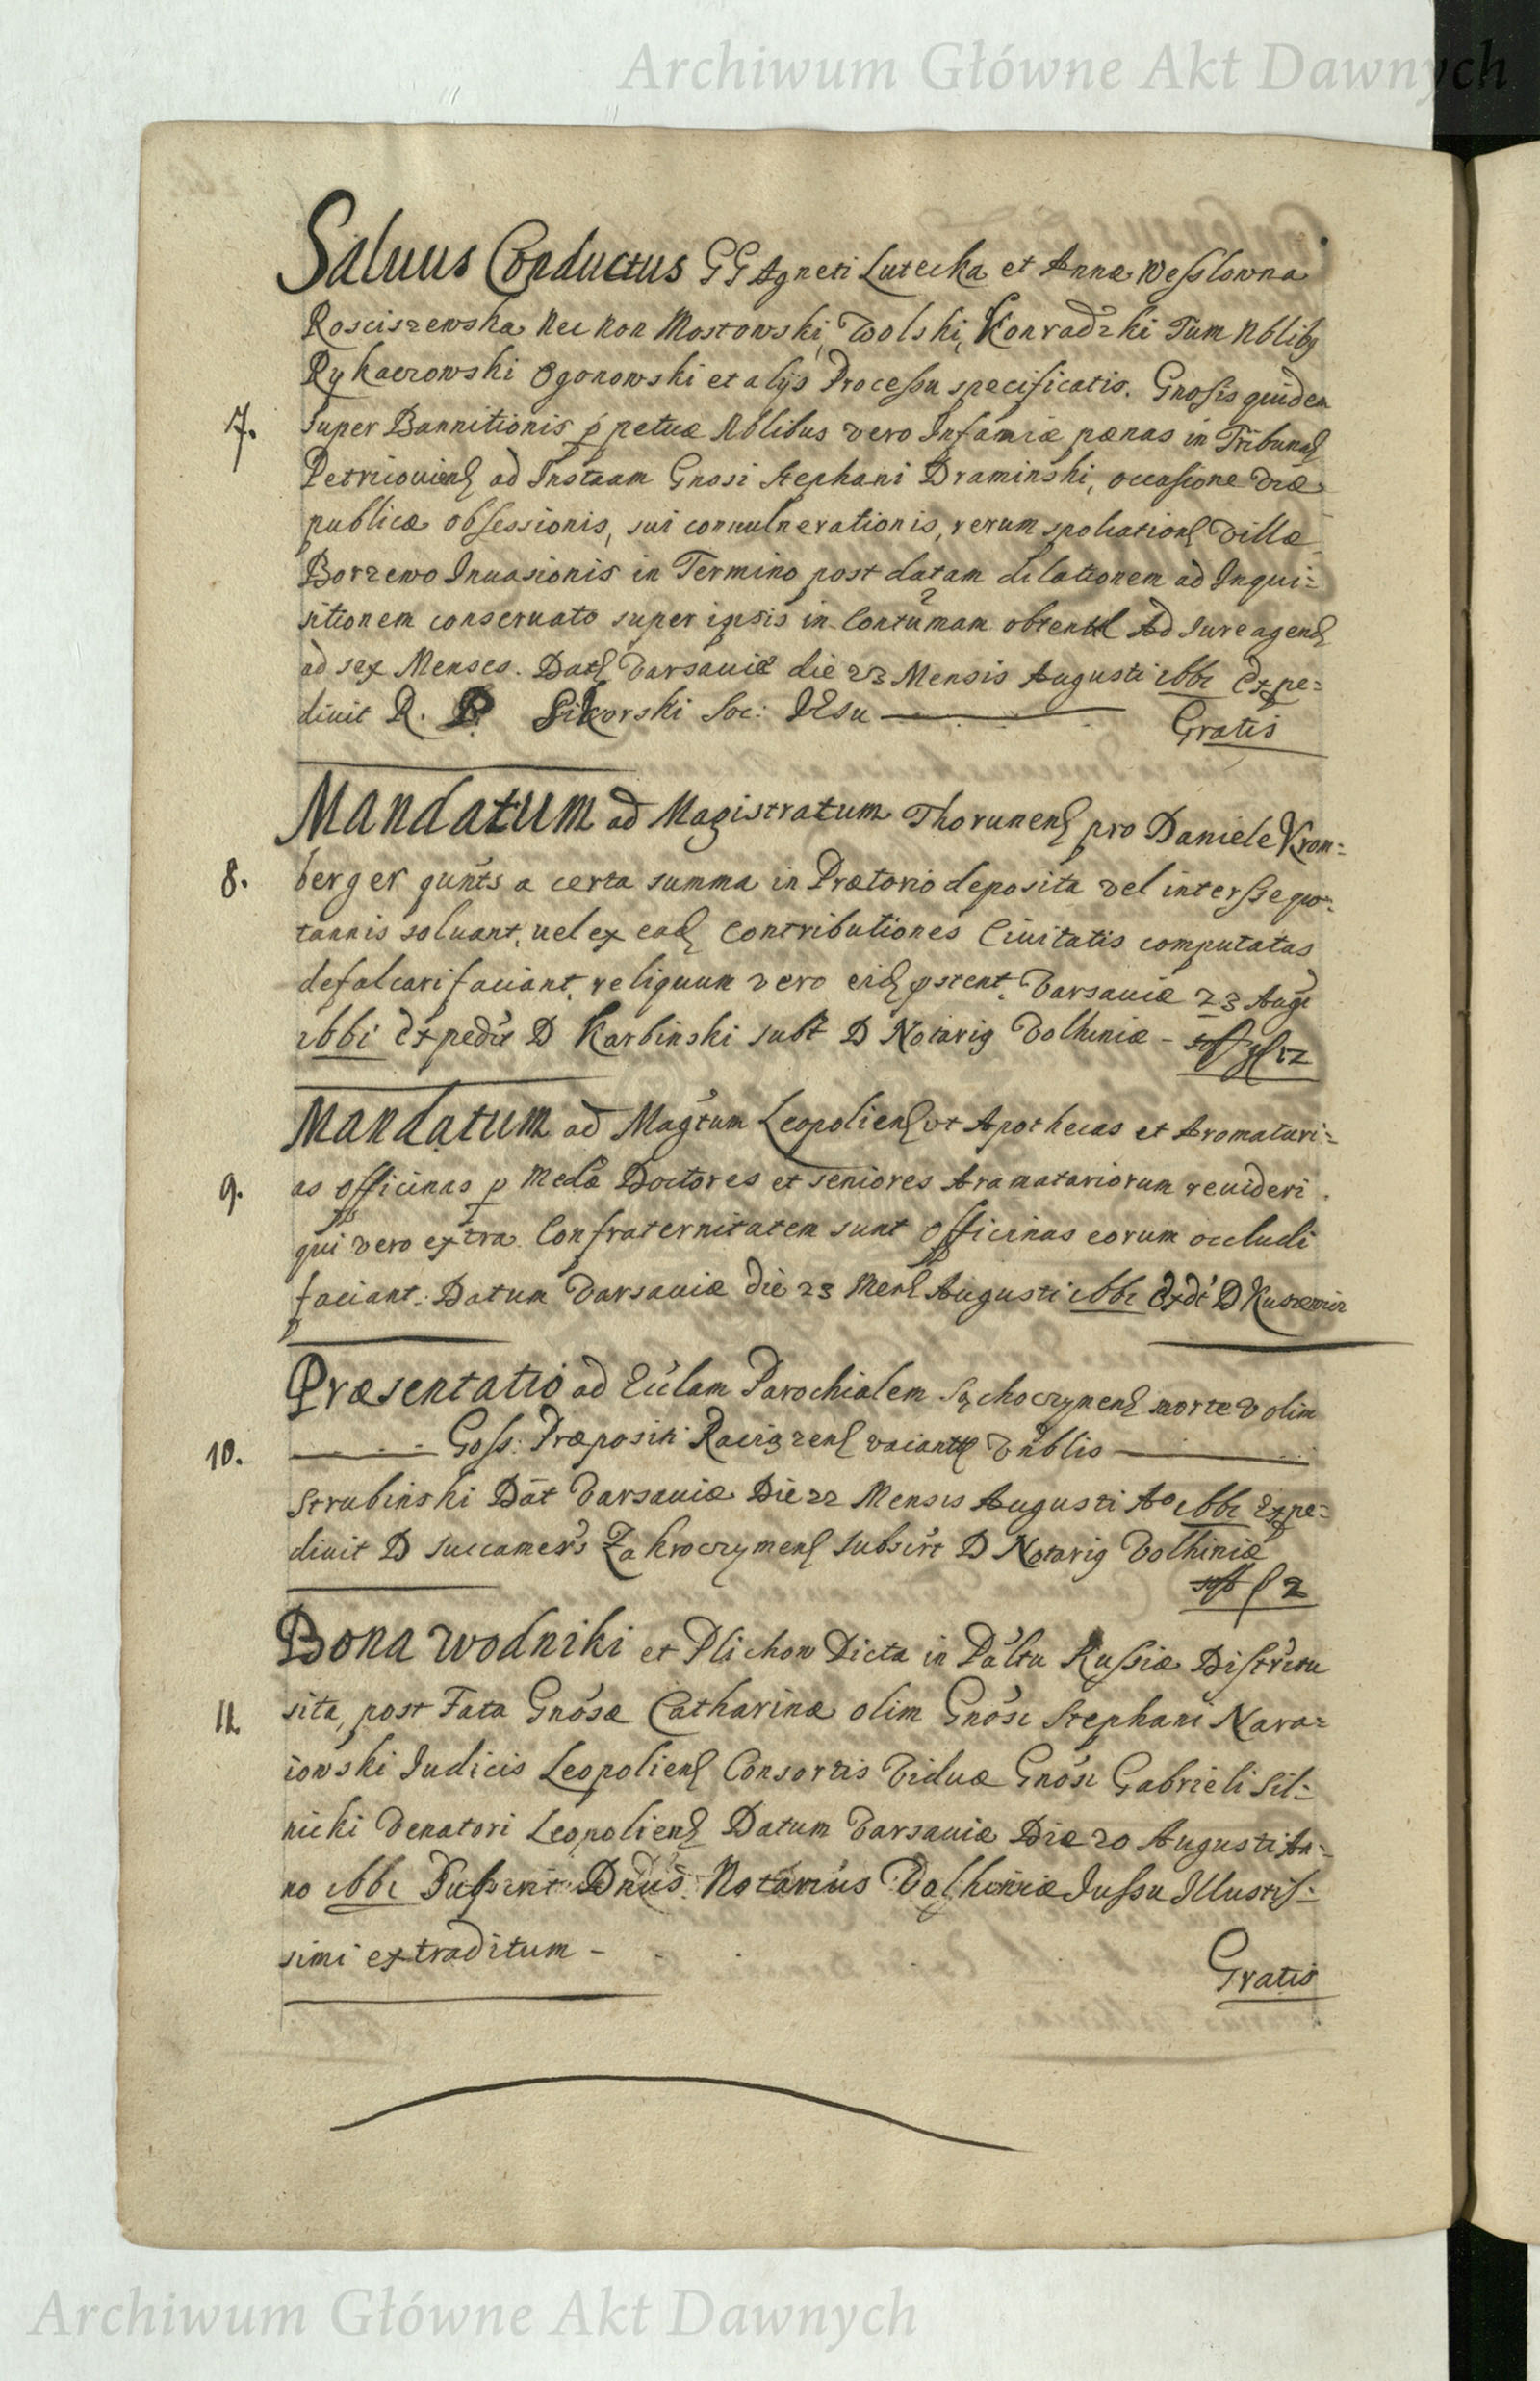 Archiwum Główne Akt Dawnych
Saluus Conductus GG Agneti Lutecka et Annæ Wesslowna
Rosciszewska Nec non Mostowski, Wolski, Konradzki Tum Nblibq
Rykaczowski Ogonowski et alijs Processu specificatis. Gnosis quidem
7. super Bannitionis ppetuæ Nblibus vero Infamiæ pænas in Tribunal
Petricouien ad Instaam Gnosi Stephani Draminski, occasione viæ
publicæ obsessionis, sui conuulnerationis, rerum spoliation Villæ
Borzewo Inuasionis in Termino post datam dilationem ad Inqui=
sitionem conseruato super ipsis in Contumam obtent Ad Jure agend
ad sex Menses. Dat Varsauiæ die 23 Mensis Augusti 1661 Expe=
diuit R. P. Sikorski Soc: IEsu Gratis
Mandatum ad Magistratum Thorunen pro Daniele Krom=
8. berger qunts a certa summa in Prætorio deposita vel interesse quo=
tannis soluant, uel ex ead Contributiones Ciuitatis computatas
defalcari faciant, reliquum vero eid pstent. Varsauiæ 23 Augi
1661 Expedit D Karbinski subt D Notariq Volhiniæ - 12
Mandatum ad Magtum Leopolien vt Apothecas et Aromatari=
9. as officinas p Medæ Doctores et seniores Aramatariorum reuideri
qui vero extra Confraternitatem sunt officinas eorum occludi
faciant. Datum Varsauiæ die 23 Men Augusti 1661 Exdt D Kuszewicz
Præsentatio ad Ecclam Parochialem Sąchoczymen morte V olim
10. Goss: Præpositi Raciązen vacant Vnblis
Strubinski Dat Varsauiæ Die 22 Mensis Augusti Ao 1661 Expe=
diuit D succamers Zakroczymen subscrt D Notariq Volhiniæ
2
Bona Wodniki et Plichow Dicta in Paltu Russiæ Districtu
11. sita, post Fata Gnosæ Catharinæ olim Gnosi Stephani Nara=
iowski Iudicis Leopolien Consortis Viduæ Gnosi Gabrieli Sil=
nicki Venatori Leopolien Datum Varsauiæ Die 20 Augusti An=
no 1661 Subscrit Dnus Notarius Volhiniæ Jussu Illustris=
simi extraditum - Gratis
Archiwum Główne Akt Dawnych